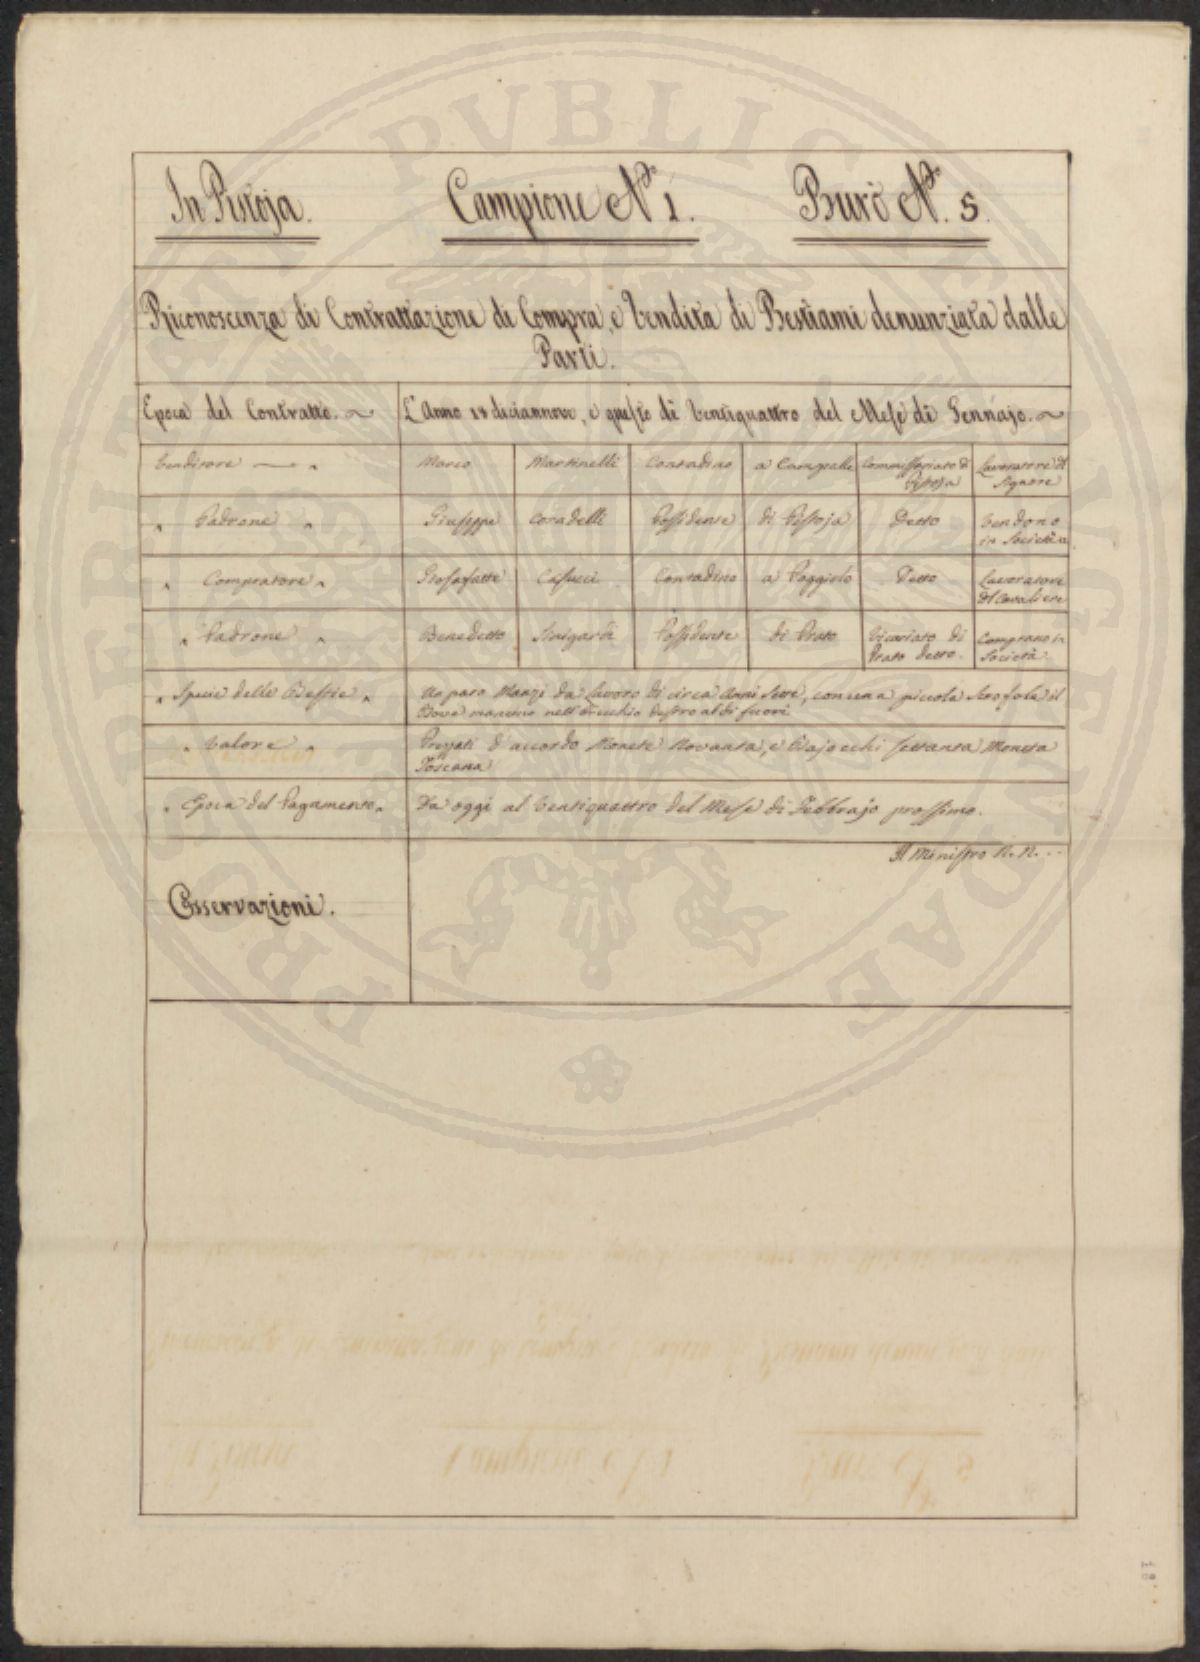 In Pistoja. Campione N.º 1. Burò N.º 5.
Riconoscenza di Contrattazione di Compra, e Vendita di Bestiami denunziata dalle
Parti.
Epoca del Contratto. L'Anno 18 diciannove, e questo dì Ventiquattro del Mese di Gennajo.
Venditore " Marco Martinelli Contadino a Commissariato di Pistoja Lavoratore del Signore
" Padrone " Giuseppe Possidente di Pistoja Detto Vendono in Società
" Compratore " Giosafatte Casucci Contadino a Poggiolo Detto Lavoratore del Cavaliere
" Padrone " Benedetto Possidente di Prato Vicariato di Prato detto. Comprano in Società
" Specie delle Bestie " Un paro Manzi da lavoro di circa Anni Sette, con una piccola il
Bove mancino nell'Orecchio destro al di fuori
" Valore " d'accordo Monete Novanta, e Bajocchi settanta Moneta
Toscana
" Epoca del Pagamento " Da oggi al Ventiquattro del Mese di Febbrajo prossimo.
Il Ministro N. N. ..
Osservazioni.
PROSPERITATI PUBLICAE AUGENDAE
18